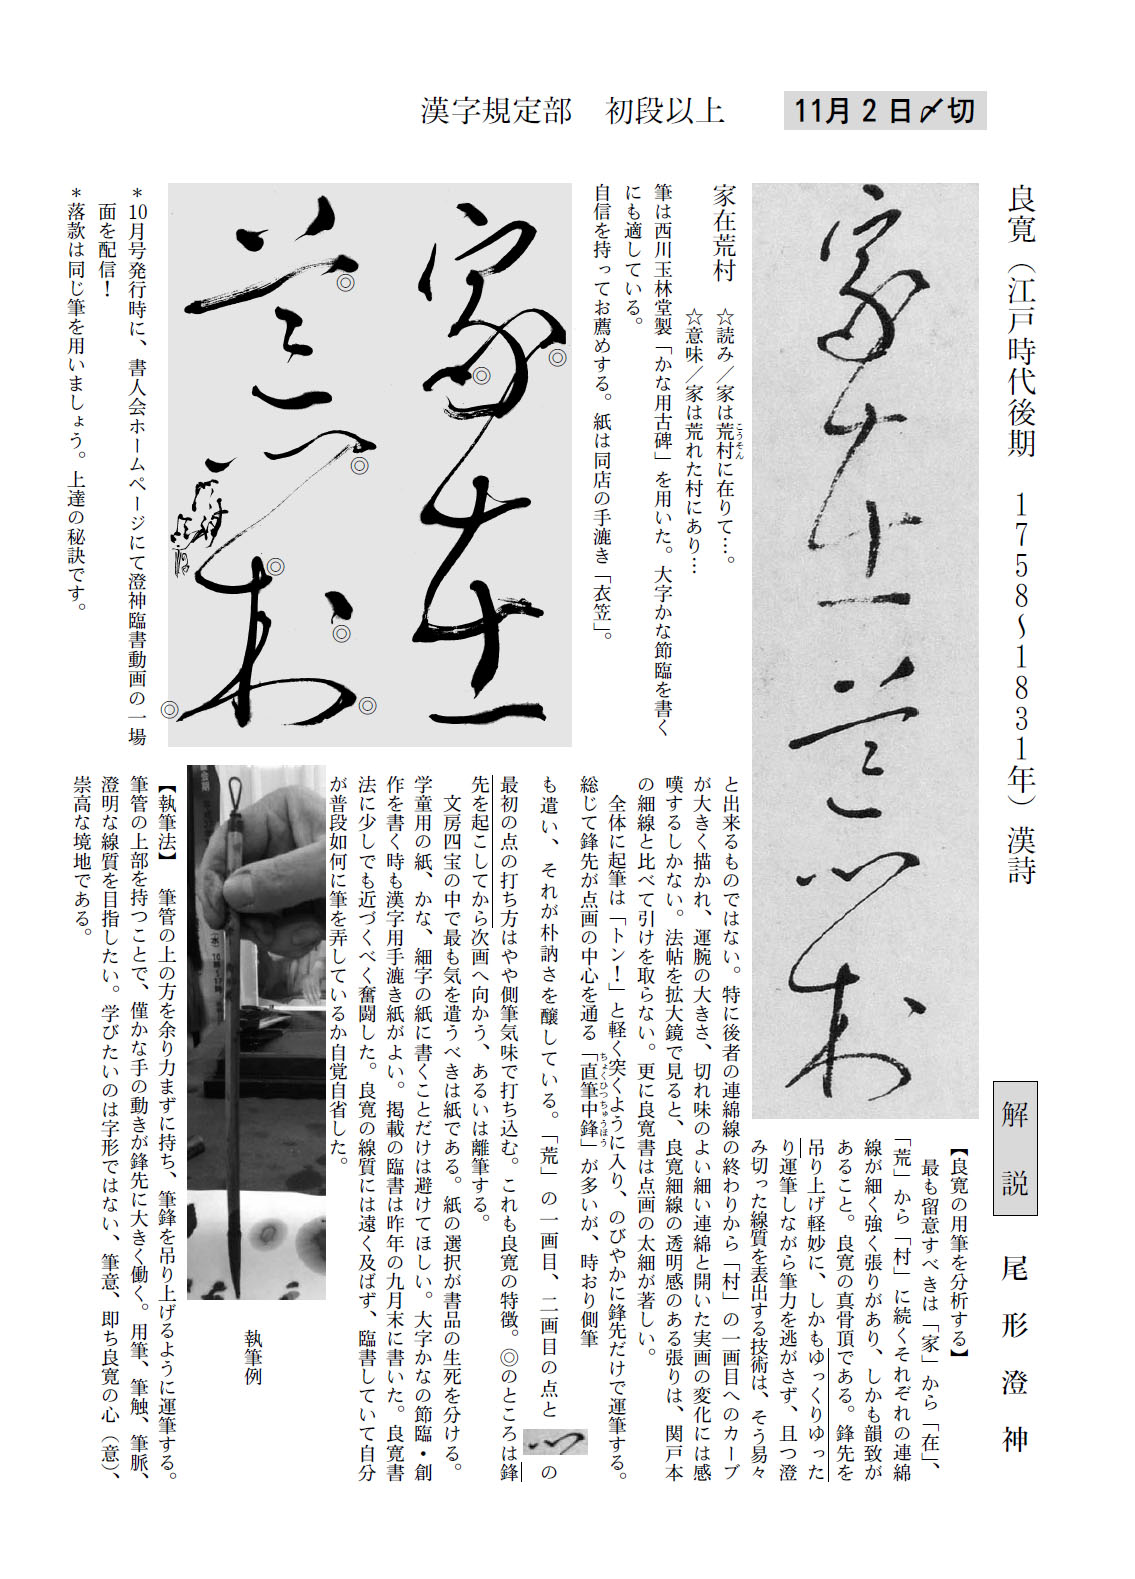 11月2日〆切
漢字規定部　初段以上
良寛（江戸時代後期　1758〜1831年）漢詩
家在荒村
☆読み／家は荒村に在りて…。
こうそん
☆意味／家は荒れた村にあり…
筆は西川玉林堂製「かな用古碑」を用いた。大字かな節臨を書く
にも適している。
自信を持ってお薦めする。紙は同店の手漉き「衣笠」。
家在
荒村
◎
◎
◎
◎
◎
◎
◎
◎
＊10月号発行時に、書人会ホームページにて澄神臨書動画の一場
面を配信！
＊落款は同じ筆を用いましょう。上達の秘訣です。
解説
尾形澄神
【良寛の用筆を分析する】
最も留意すべきは「家」から「在」、
「荒」から「村」に続くそれぞれの連綿
線が細く強く張りがあり、しかも韻致が
あること。良寛の真骨頂である。鋒先を
吊り上げ軽妙に、しかもゆっくりゆった
り運筆しながら筆力を逃がさず、且つ澄
み切った線質を表出する技術は、そう易々
と出来るものではない。特に後者の連綿線の終わりから「村」の一画目へのカーブ
が大きく描かれ、運腕の大きさ、切れ味のよい細い連綿と開いた実画の変化には感
嘆するしかない。法帖を拡大鏡で見ると、良寛細線の透明感のある張りは、関戸本
の細線と比べて引けを取らない。更に良寛書は点画の太細が著しい。
全体に起筆は「トン！」と軽く突くように入り、のびやかに鋒先だけで運筆する。
総じて鋒先が点画の中心を通る「直筆中鋒」が多いが、時おり側筆
ちょくひつちゅうほう
も遣い、それが朴訥さを醸している。「荒」の一画目、二画目の点と　の
最初の点の打ち方はやや側筆気味で打ち込む。これも良寛の特徴。◎のところは鋒
先を起こしてから次画へ向かう、あるいは離筆する。
文房四宝の中で最も気を遣うべきは紙である。紙の選択が書品の生死を分ける。
学童用の紙、かな、細字の紙に書くことだけは避けてほしい。大字かなの節臨・創
作を書く時も漢字用手漉き紙がよい。掲載の臨書は昨年の九月末に書いた。良寛書
法に少しでも近づくべく奮闘した。良寛の線質には遠く及ばず、臨書していて自分
が普段如何に筆を弄しているか自覚自省した。
執筆例
【執筆法】　筆管の上の方を余り力まずに持ち、筆鋒を吊り上げるように運筆する。
筆管の上部を持つことで、僅かな手の動きが鋒先に大きく働く。用筆、筆触、筆脈、
澄明な線質を目指したい。学びたいのは字形ではない、筆意、即ち良寛の心（意）、
崇高な境地である。